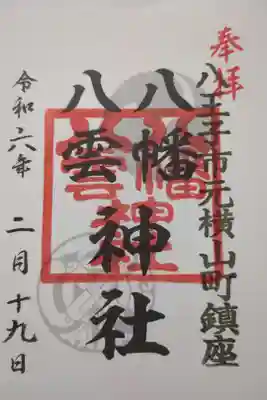 奉拝
八王子市元横山町鎮座
八幡
八雲
神社
令和六年 二月十九日